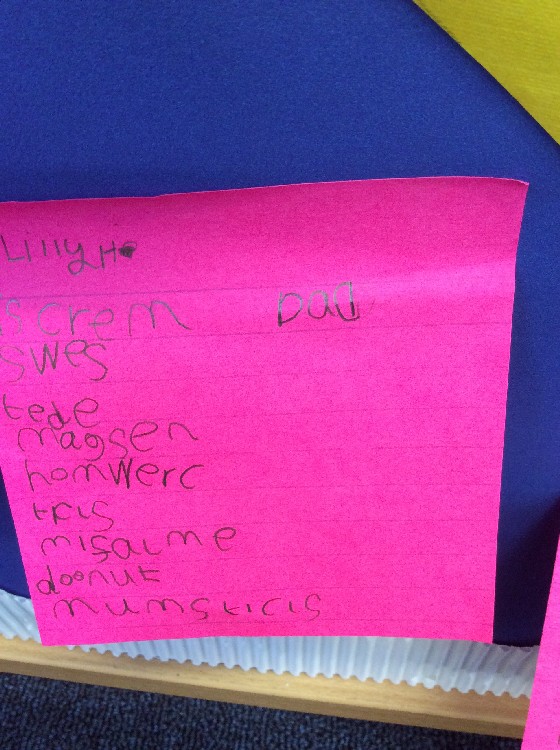 Lilly H
screm Dad
swes
tede
magsen
homwerc
tris
misaime
doonut
mumsticis